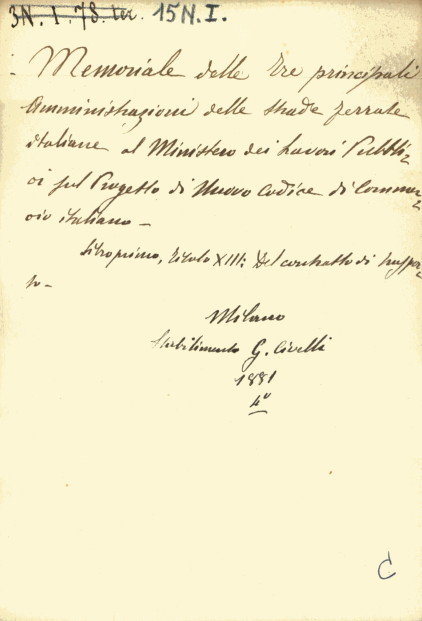 3N. I. 78. ter. 15 N. I.
Memoriale delle tre principali
Amministrazioni delle strade ferrate
italiane al Ministero dei Lavori Pubbli-
ci sul Progetto di Nuovo Codice di Commer-
cio italiano -
Libro primo, titolo XIII: Del contratto di traspor-
to -
Milano
Stabilimento G. Civelli
1881
4°
C